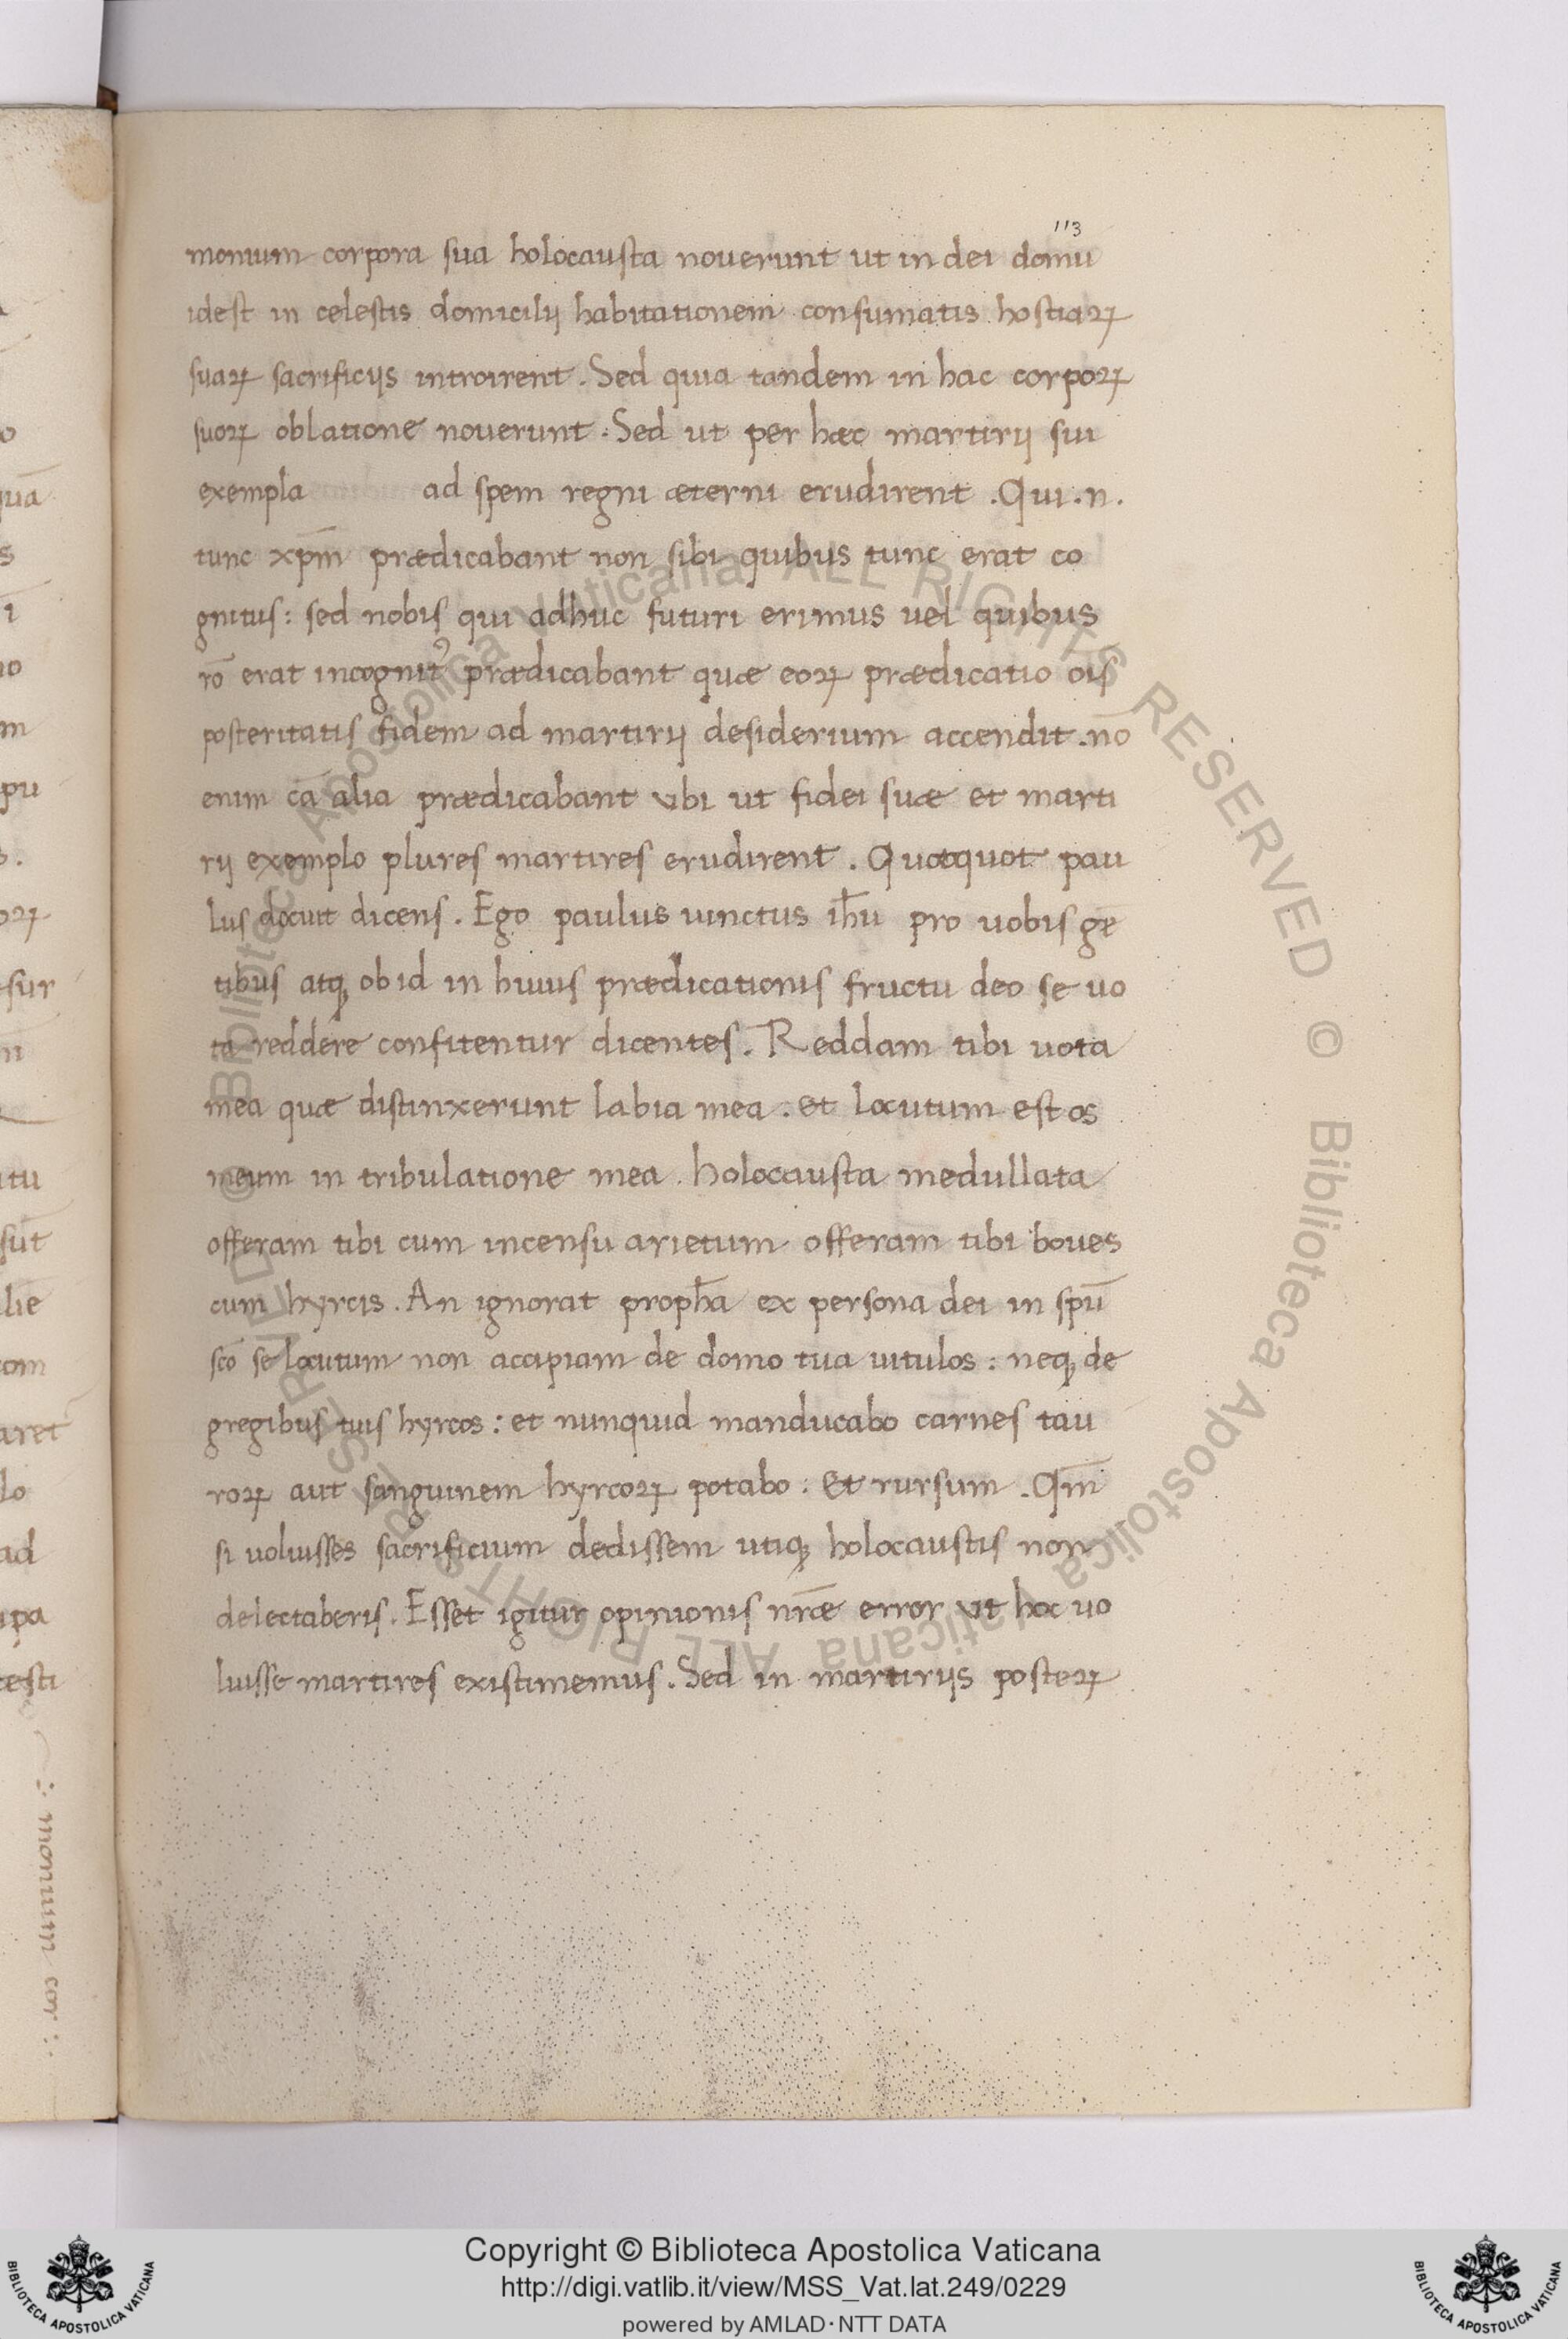 113
monium corpora sua holocausta nouerunt ut in dei domu
idest in celestis domicilij habitationem consumatis hostiaꝝ
suaꝝ sacrificijs introirent. Sed quia tandem in hac corpoꝝ
suoꝝ oblatione nouerunt. Sed ut per hæc martirij sui
exempla ad spem regni æterni erudirent. Qui.n.
tunc xp̄m prædicabant non sibi quibus tunc erat co
gnitus: sed nobis qui adhuc futuri erimus uel quibus
rō erat incognitꝰ prædicabant quæ eoꝝ prædicatio oīs
posteritatis fidem ad martirij desiderium accendit. nō
enim cā alia prædicabant ubi ut fidei suæ et marti
rij exemplo plures martires erudirent. Quotquot pau
lus docuit dicens. Ego paulus uinctus ih̄u pro uobis gē
tibus atqꝫ ob id in huius prædicationis fructu deo se uo
ta reddere confitentur dicentes. Reddam tibi uota
mea quæ distinxerunt labia mea. et locutum est os
meum in tribulatione mea. holocausta medullata
offeram tibi cum incensu arietum offeram tibi boues
cum hyrcis. An ignorat proph̄a ex persona dei in spū
scō se locutum non accipiam de domo tua uitulos: neqꝫ de
gregibus tuis hyrcos: et nunquid manducabo carnes tau
roꝝ aut sanguinem hyrcoꝝ potabo: Et rursum. Qm̄
si uoluisses sacrificium dedissem utiqꝫ holocaustis non
delectaberis. Esset igitur opinionis nr̄æ error ut hoc uo
luisse martires existimemus. Sed in martirijs posteꝝ
monium cor
© Biblioteca Apostolica Vaticana ALL RIGHTS RESERVED © Biblioteca Apostolica Vaticana ALL RIGHTS RESERVED
Copyright © Biblioteca Apostolica Vaticana
http://digi.vatlib.it/view/MSS_Vat.lat.249/0229
powered by AMLAD·NTT DATA
BIBLIOTECA APOSTOLICA VATICANA
BIBLIOTECA APOSTOLICA VATICANA